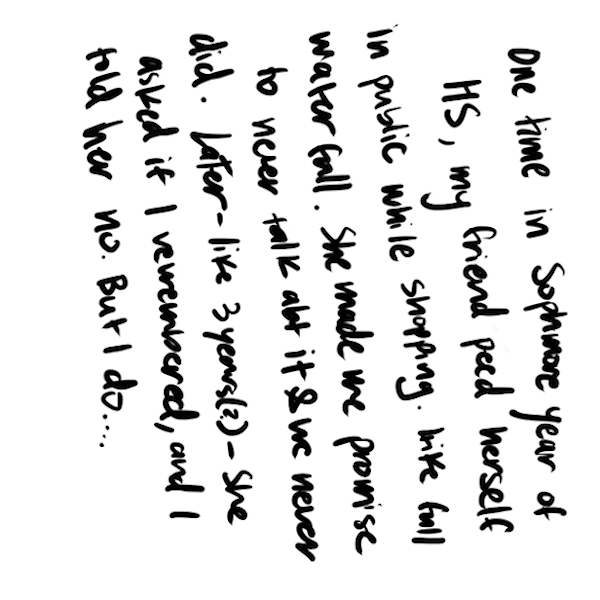 One time in Sophmore year of
HS, my friend peed herself
in public while shopping. Like full
water fall. She made me promise
to never talk abt it & we never
did. Later - like 3 years(?) - She
asked if I remembered, and I
told her no. But I do....